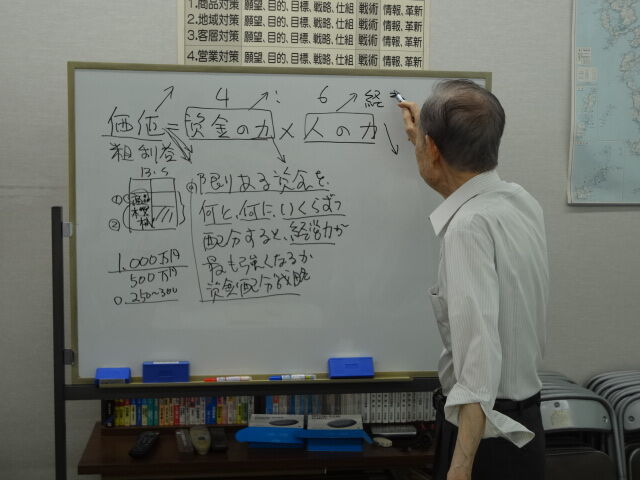 1.商品対策 願望、目的、目標、戦略、仕組 戦術 情報、革新
2.地域対策 願望、目的、目標、戦略、仕組 戦術 情報、革新
3.客層対策 願望、目的、目標、戦略、仕組 戦術 情報、革新
4.営業対策 願望、目的、目標、戦略、仕組 戦術 情報、革新
4 : 6 経
価値=資金の力×人の力
粗利益
13.5
① ②
限りある資金を、
何と、何に、いくらずつ
配分すると、経営力が
最も強くなるか
資金配分戦略
1.000万円
500万円
0.250~300